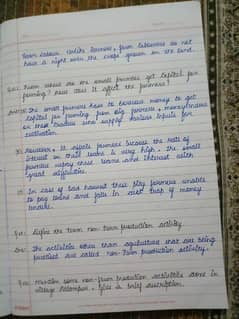 Farm labour. Unlike farmers, farm labourers do not
have a right over the crops grown on the land.
Que: From where do the small farmers get capital for
farming? How does it affect the farmers?
Ans: The small farmers have to borrow money to get
capital for farming from big farmers, moneylenders
or the traders who supply various inputs for
cultivation.
However, it affects farmers because the rate of
interest on their loans is very high. the small
farmers repay these loans and interest with
great difficulties.
In case of bad harvest these farmers unable
to pay loans and falls in debt trap of money
lender.
Que: Define the term non farm production activity.
Ans: The activities other than agriculture that are being
practised are called non-farm production activity.
Que: Mention some non-farm production activities done in
village Palampur. Give a brief description.